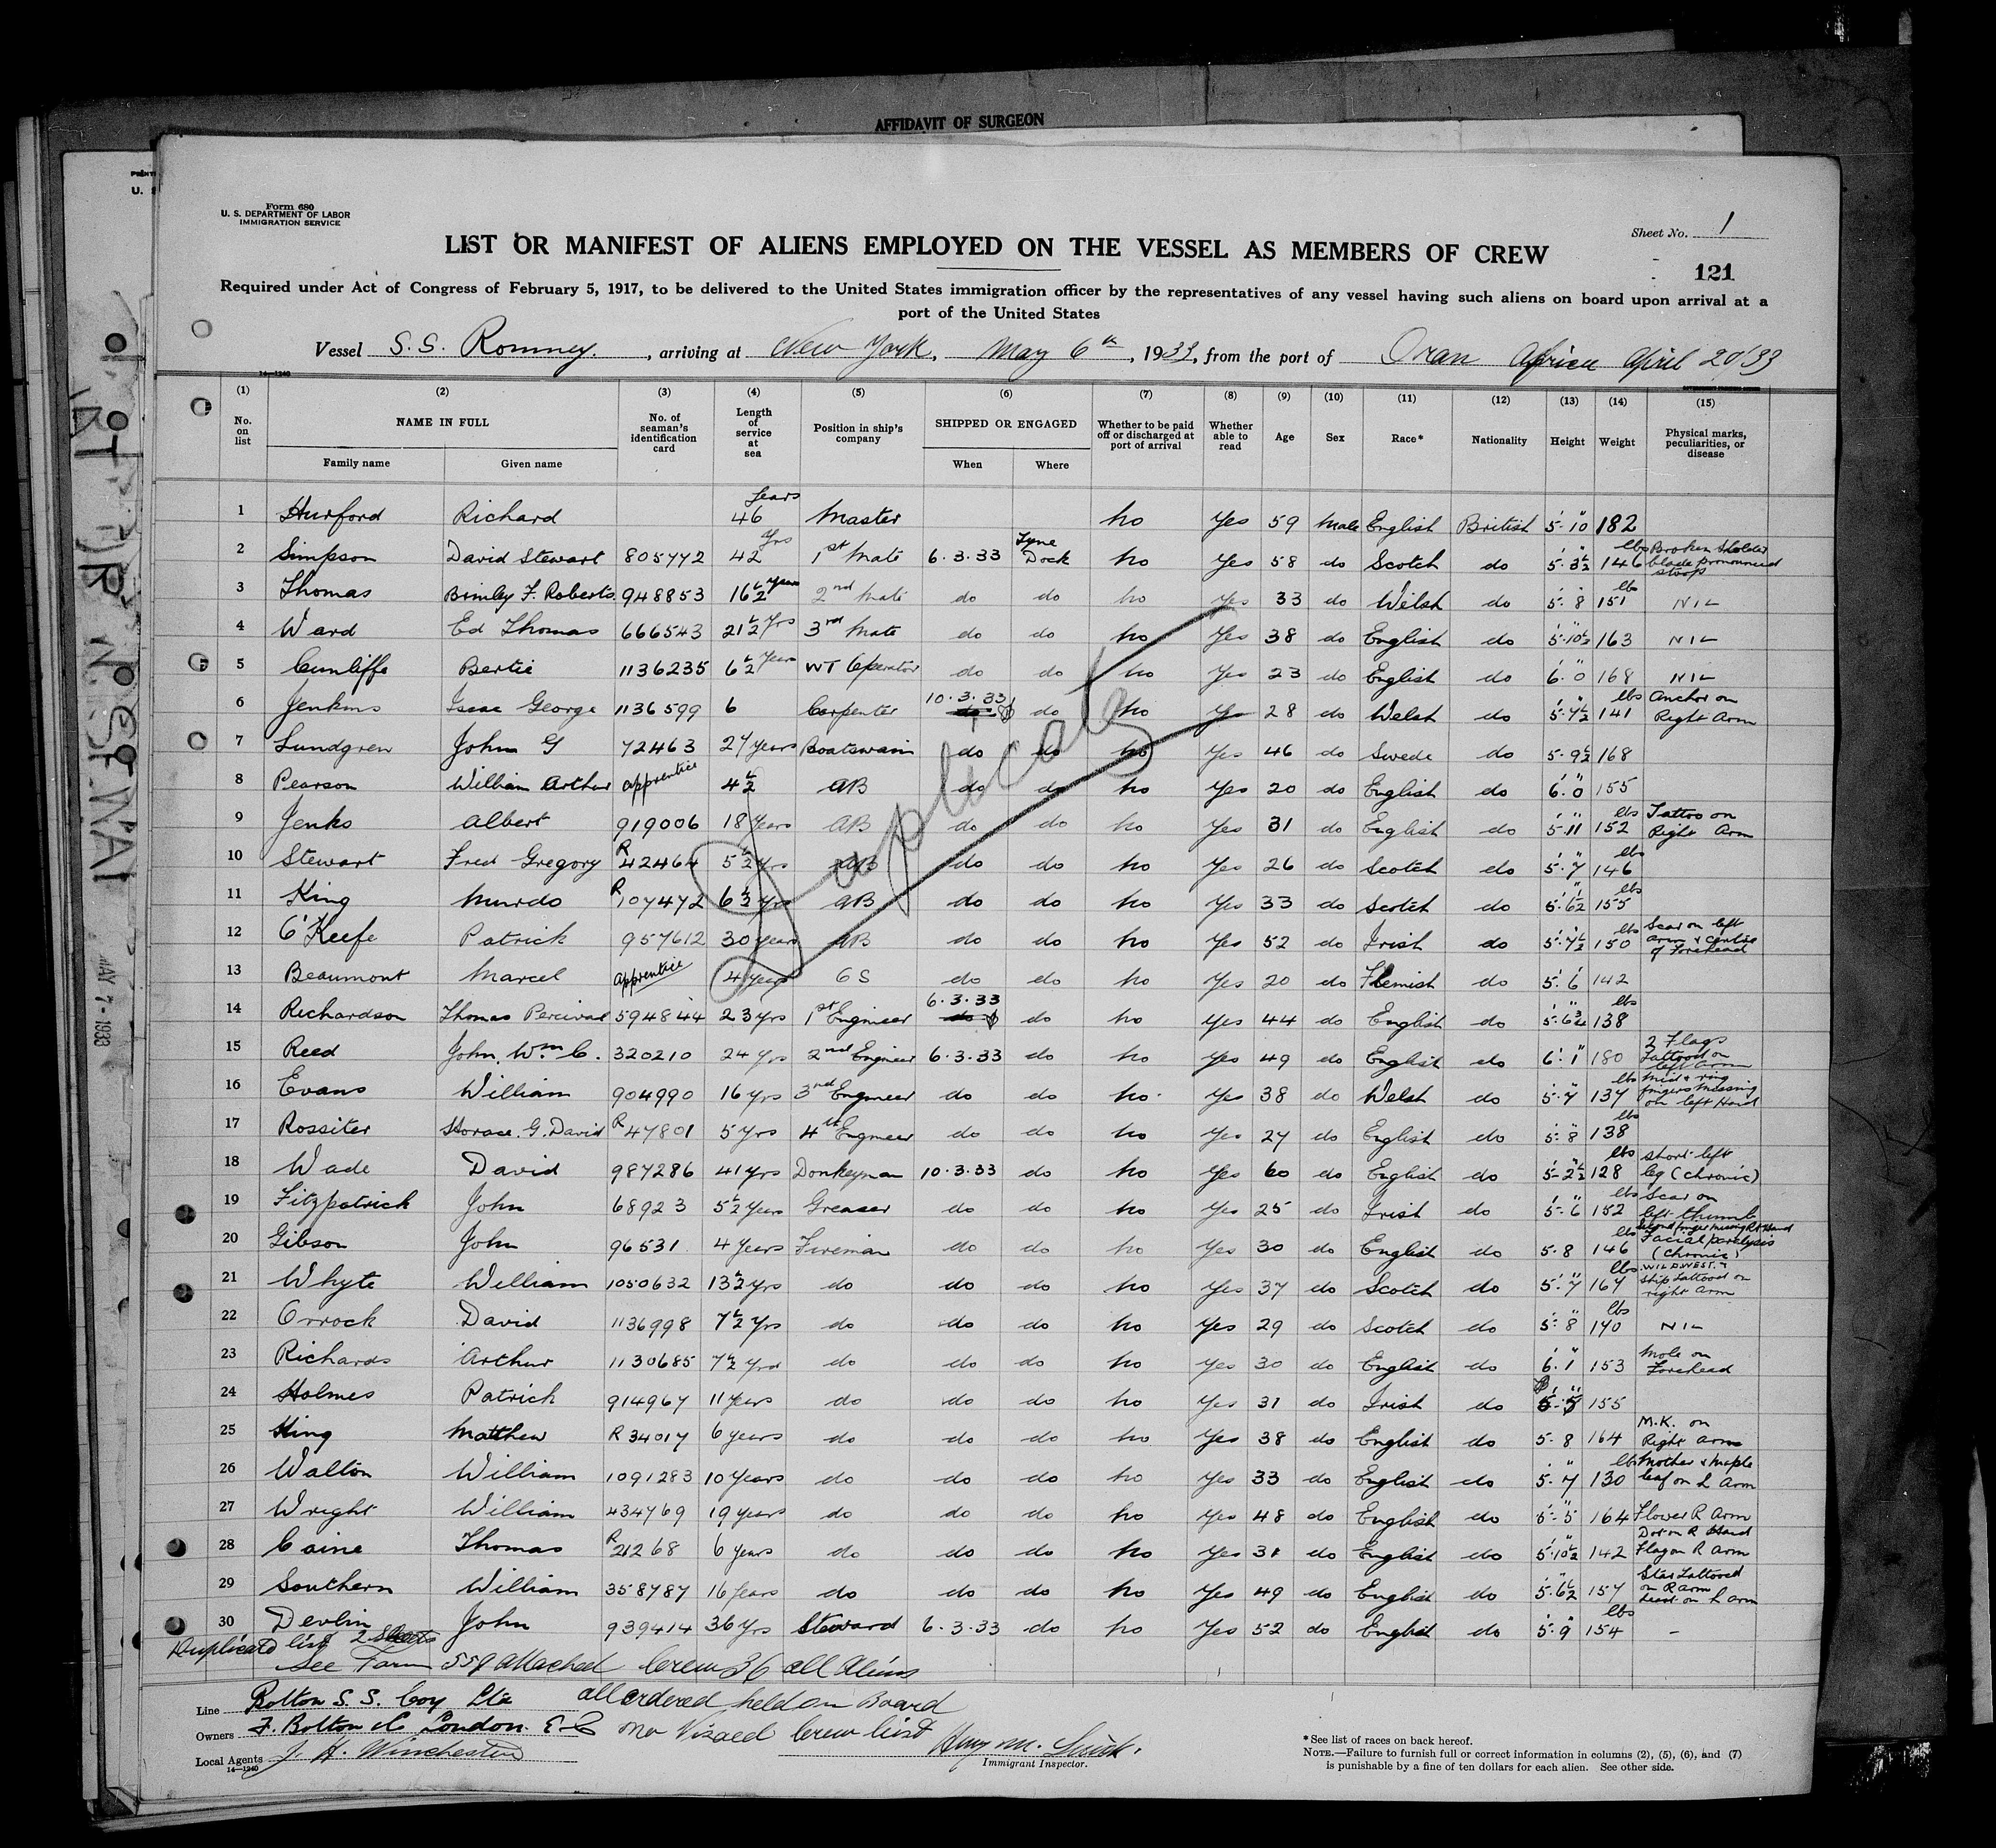 AFFIDAVIT OF SURGEON
Form 680
U. S. DEPARTMENT OF LABOR
IMMIGRATION SERVICE
Sheet No. 1
LIST OR MANIFEST OF ALIENS EMPLOYED ON THE VESSEL AS MEMBERS OF CREW
121
Required under Act of Congress of February 5, 1917, to be delivered to the United States immigration officer by the representatives of any vessel having such aliens on board upon arrival at a
port of the United States
Vessel S.S. Romney, arriving at New York, May 6th, 1933, from the port of Oran Africa April 20/33
14-1240
(1) (2) (3) (4) (5) (6) (7) (8) (9) (10) (11) (12) (13) (14) (15)
No. on list NAME IN FULL Family name Given name No. of seaman's identification card Length of service at sea Position in ship's company SHIPPED OR ENGAGED When Where Whether to be paid off or discharged at port of arrival Whether able to read Age Sex Race* Nationality Height Weight Physical marks, peculiarities, or disease
1 Hurford Richard 46 years Master no Yes 59 Male English British 5'-10" 182
2 Simpson David Stewart 805772 42 yrs 1st Mate 6.3.33 Tyne Dock no Yes 58 do Scotch do 5'-3½" 146 lbs Broken Sholder blade pronounced stoop
3 Thomas Brinley F. Roberts 948853 16½ years 2nd Mate do do no Yes 33 do Welsh do 5'-8" 151 lbs NIL
4 Ward Ed Thomas 666543 21½ yrs 3rd Mate do do no Yes 38 do English do 5'-10½" 163 NIL
5 Cunliffe Bertie 1136235 6½ years WT Operator do do no Yes 23 do English do 6'.0" 168 NIL
6 Jenkins Isaac George 1136599 6 Carpenter 10.3.33 do do no Yes 28 do Welsh do 5'-7½" 141 lbs Anchor on Right Arm
7 Lundgren John G 72463 27 years Boatswain do do no Yes 46 do Swede do 5-9½ 168
8 Pearson William Arthur apprentice 4½ AB do do no Yes 20 do English do 6'.0" 155
9 Jenks Albert 919006 18 years AB do do no Yes 31 do English do 5'-11" 152 lbs Tattoo on Right Arm
10 Stewart Fred Gregory R 42464 5½ yrs AB do do no Yes 26 do Scotch do 5'-7" 146 lbs
11 King Murdo R 107472 6½ yrs AB do do no Yes 33 do Scotch do 5'-6½" 155 lbs
12 O'Keefe Patrick 957612 30 years AB do do no Yes 52 do Irish do 5'-7½" 150 lbs Scar on left arm & centre of Forehead
13 Beaumont Marcel apprentice 4 years OS do do no Yes 20 do Flemish do 5'.6" 142
14 Richardson Thomas Percival 594844 23 yrs 1st Engineer 6.3.33 do do no Yes 44 do English do 5'-6¾" 138 lbs
15 Reed John. Wm C. 320210 24 yrs 2nd Engineer 6.3.33 do no Yes 49 do English do 6'.1" 180 2 Flags Tattooed on left arm
16 Evans William 904990 16 yrs 3rd Engineer do do no. Yes 38 do Welsh do 5'-7" 137 lbs Mid & ring fingers missing on left Hand
17 Rossiter Horace. G. David R 47801 5 yrs 4th Engineer do do no Yes 27 do English do 5'-8" 138 lbs
18 Wade David 987286 41 yrs Donkeyman 10.3.33 do no Yes 60 do English do 5'-2½" 128 lbs short left leg (chronic)
19 Fitzpatrick John 68923 5½ years Greaser do do no Yes 25 do Irish do 5'-6" 152 lbs Scar on left thumb
20 Gibson John 96531 4 years Fireman do do no Yes 30 do English do 5-8 146 lbs Second finger missing Rt Hand Facial paralysis (chronic)
21 Whyte William 1050632 13½ yrs do do do no Yes 37 do Scotch do 5'-7" 167 lbs WILD WEST & ship tattooed on right arm
22 Orrock David 1136998 7½ yrs do do do no Yes 29 do Scotch do 5'-8" 140 lbs NIL
23 Richards Arthur 1130685 7½ yrs do do do no Yes 30 do English do 6'.1" 153 Mole on Forehead
24 Holmes Patrick 914967 11 years do do do no Yes 31 do Irish do 5'-5" 155
25 King Matthew R 34017 6 years do do do no Yes 38 do English do 5-8 164 M.K. on Right arm
26 Walton William 1091283 10 years do do do no Yes 33 do English do 5-7" 130 lbs Mother & Maple leaf on L arm
27 Wright William 434769 19 years do do do no Yes 48 do English do 5'-5" 164 Flower R Arm
28 Caine Thomas R 21268 6 years do do do no Yes 31 do English do 5'-10½" 142 Dot on R Hand Flag on R arm
29 Southern William 358787 16 years do do do no Yes 49 do English do 5'-6½" 157 Star tattooed on R arm heart on L arm
30 Devlin John 939414 36 yrs Steward 6.3.33 do no Yes 52 do English do 5'-9" 154 lbs -
Duplicate
Duplicate list 2 Sheets
See Form 559 attached Crew 36 all aliens
Line Bolton S. S. Coy Ltd all ordered held on Board
Owners F. Bolton & Co London. E.C no Visaed Crew list
Local Agents J. H. Winchester
14-1240
Immigrant Inspector.
*See list of races on back hereof.
NOTE.—Failure to furnish full or correct information in columns (2), (5), (6), and (7)
is punishable by a fine of ten dollars for each alien. See other side.
MAY 7 - 1933